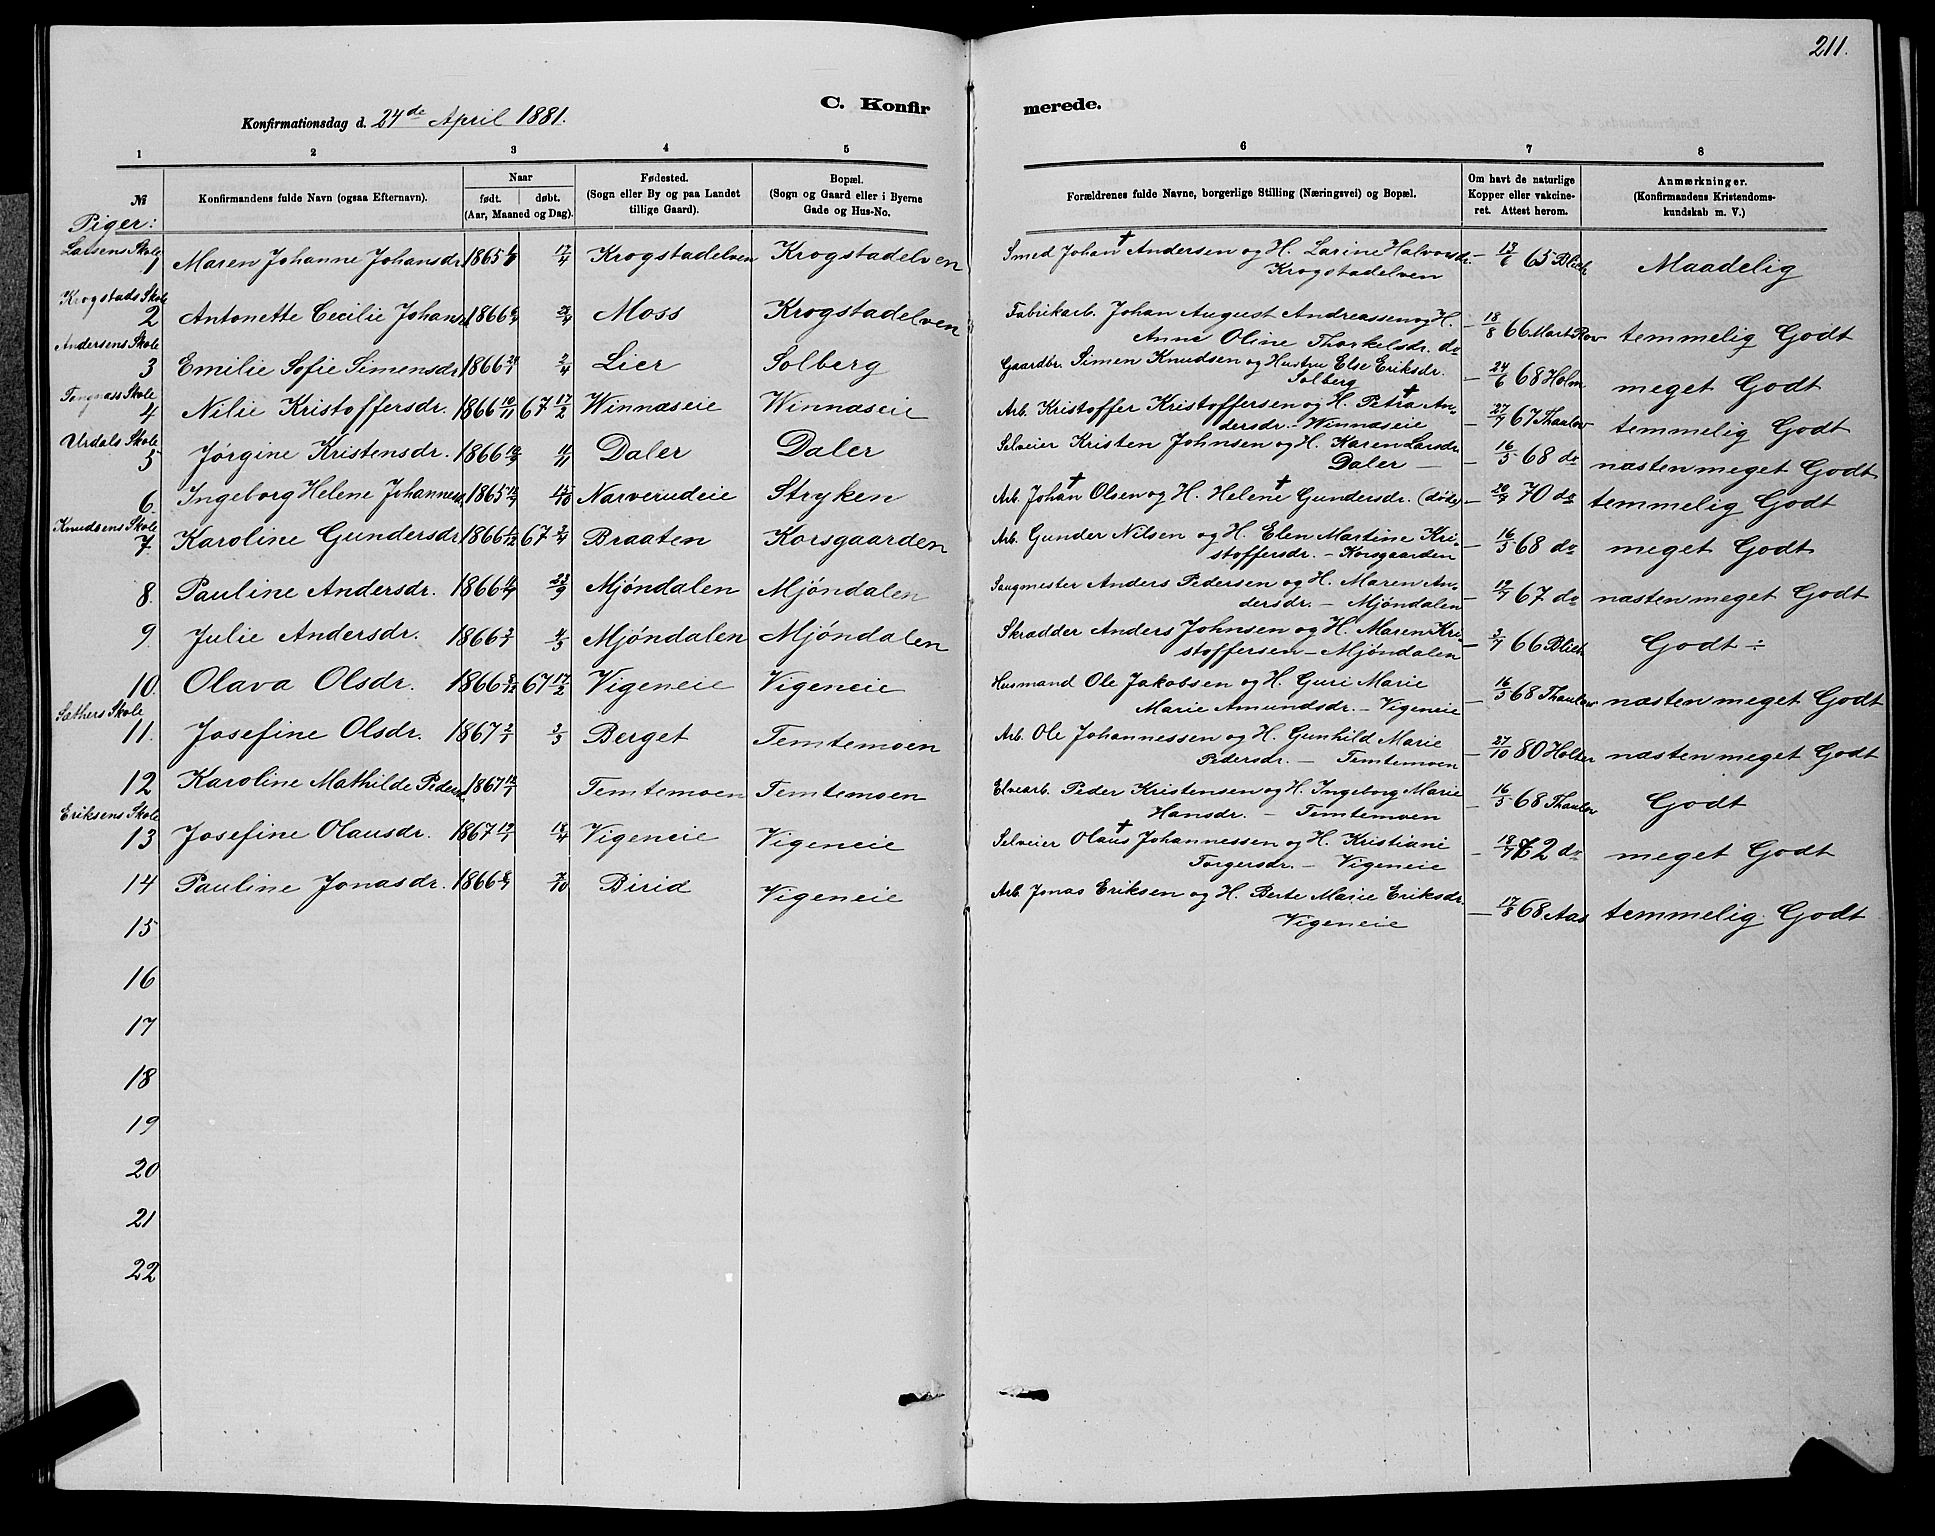 211.
C. Konfirmerede.
Konfirmationsdag d. 24de April 1881.
1 2 3 4 5 6 7 8
№ Konfirmandens fulde Navn (ogsaa Efternavn). Naar født. døbt. (Aar, Maaned og Dag). Fødested. (Sogn eller By og paa Landet tillige Gaard). Bopæl. (Sogn og Gaard eller i Byerne Gade og Hus-No. Forældrenes fulde Navne, borgerlige Stilling (Næringsvei) og Bopæl. Om havt de naturlige Kopper eller vakcineret. Attest herom. Anmærkninger. (Konfirmandens Kristendomskundskab m. V.)
Piger:
Larsens Skole
1 Maren Johanne Johansdr. 1865 17/4 Krogstadelven Krogstadelven Smed Johan † Andersen og H. Larine Halvorsdr. Krogstadelven – 13/6 65 Blich Maadelig
Krogstads Skole
2 Antonette Cecilie Johansd 1866 Moss Krogstadelven Fabrikarb. Johan August Andreassen og H. Anne Oline Thorkelsdr. do – 18/8 66 temmelig Godt
Andersens Skole
3 Emilie Sofie Simensdr 1866 2/4 Lier Solberg Gaardbr. Simen Knudsen og Hustru Else Eriksdr. Solberg – 24/6 68 Holm meget Godt
Skole
4 Nilie Kristoffersdr. 1866 10/11 67 17/2 Winnæseie Winnæseie Arb. Kristoffer Kristoffersen og H. Petra † Andersdr. – Winnæseie – 27/9 67 Thaulow temmelig Godt
Urdals Skole
5 Jørgine Kristensdr. 1866 11/11 Daler Daler Selveier Kristen Johnsen og H. Karen Larsdr. Daler – – 16/5 68 do næsten meget Godt
6. Ingeborg Helene Johannesd 1865 15/10 Narverudeie Stryken Arb. Johan † Olsen og H. Helene † Gundersdr. (døde) – 20/9 70 do temmelig Godt
Knudsens Skole
7. Karoline Gundersdr 1866 67 3/4 Braaten Korsgaarden Arb. Gunder Nilsen og H. Elen Martine Kristoffersdr. – Korsgaarden – 16/5 68 do meget Godt
8. Pauline Andersdr. 1866 23/9 Mjöndalen Mjöndalen Saugmester Anders Pedersen og H. Maren Andersdr. – Mjöndalen – 19/7 67 do næsten meget Godt
9. Julie Andersdr. 1866 4/5 Mjöndalen Mjöndalen Skrædder Anders Johnsen og H. Maren Kristoffersen – Mjöndalen – 3/7 66 Blich Godt ÷
10. Olava Olsdr. 1866 67 17/2 Vigeneie Vigeneie Husmand Ole Jakobsen og H. Guri Marie Marie Amundsdr. – Vigeneie – 16/5 68 Thaulow næsten meget Godt
Sæthers Skole
11. Josefine Olsdr. 1867 2/1 3/3 Berget Temtemoen Arb. Ole Johannessen og H. Gunhild Marie Pedersdr. – Temtemoen – 27/10 80 Holter næsten meget Godt
12 Karoline Mathilde Pedersd 1867 12/1 Temtemoen Temtemoen Elvearb. Peder Kristensen og H. Ingeborg Marie Hansdr. – Temtemoen – 16/5 68 Thaulow Godt
Eriksens Skole
13 Josefine Olausdr. 1867 18/4 Vigeneie Vigeneie Selveier Olaus † Johannessen og H. Kristiane Torgersdr. – Vigeneie – 19/7 72 do meget Godt
14 Pauline Jonasdr. 1866 7/10 Birid Vigeneie Arb. Jonas Eriksen og H. Berte Marie Eriksdr. Vigeneie – 17/8 68 Aas temmelig Godt
15
16
17
18
19
20
21
22